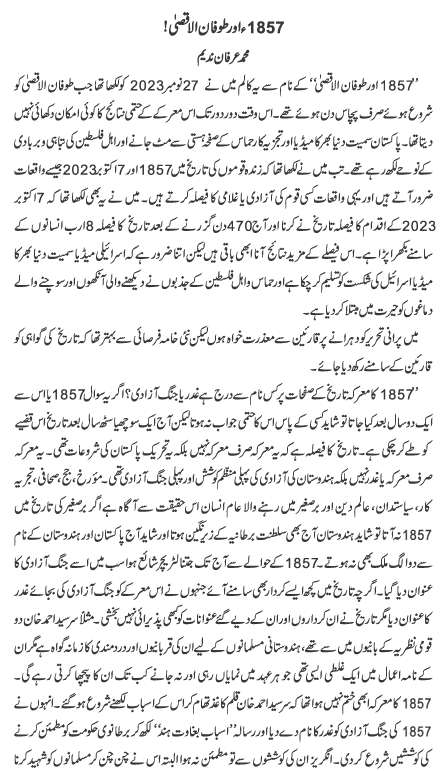 1857ء اور طوفان الاقصیٰ!
محمد عرفان ندیم
’’1857 اور طوفان الاقصیٰ‘‘ کے نام سے یہ کالم میں نے 27 نومبر 2023 کو لکھا تھا جب طوفان الاقصیٰ کو
شروع ہوئے صرف پچاس دن ہوئے تھے۔ اس وقت دور دور تک اس معرکے کے حتمی نتائج کا کوئی امکان دکھائی نہیں
دیتا تھا۔ پاکستان سمیت دنیا بھر کا میڈیا اور تجزیہ کار حماس کے صفحہ ہستی سے مٹ جانے اور اہل فلسطین کی تباہی و بربادی
کے نوحے لکھ رہے تھے۔ تب میں نے لکھا تھا کہ زندہ قوموں کی تاریخ میں 1857 اور 7 اکتوبر 2023 جیسے واقعات
ضرور آتے ہیں اور یہی واقعات کسی قوم کی آزادی یا غلامی کا فیصلہ کرتے ہیں۔ میں نے یہ بھی لکھا تھا کہ 7 اکتوبر
2023 کے اقدام کا فیصلہ تاریخ نے کرنا اور آج 470 دن گزرنے کے بعد تاریخ کا فیصلہ 8 ارب انسانوں کے
سامنے بکھرا پڑا ہے۔ اس فیصلے کے مزید نتائج آنا ابھی باقی ہیں لیکن اتنا ضرور ہے کہ اسرائیلی میڈیا سمیت دنیا بھر کا
میڈیا اسرائیل کی شکست کو تسلیم کر چکا ہے اور حماس و اہل فلسطین کے جذبوں نے دیکھنے والی آنکھوں اور سوچنے والے
دماغوں کو حیرت میں مبتلا کر دیا ہے۔
میں پرانی تحریر کو دہرانے پر قارئین سے معذرت خواہ ہوں لیکن نئی خامہ فرسائی سے بہتر تھا کہ تاریخ کی گواہی کو
قارئین کے سامنے رکھ دیا جائے۔
’’1857 کا معرکہ تاریخ کے صفحات پر کس نام سے درج ہے غدر یا جنگ آزادی؟ اگر یہ سوال 1857 یا اس سے
ایک دو سال بعد کیا جاتا تو شاید کسی کے پاس اس کا حتمی جواب نہ ہوتا لیکن آج ایک سو چھیاسٹھ سال بعد تاریخ اس قضیے
کو طے کر چکی ہے۔ تاریخ کا فیصلہ ہے کہ یہ معرکہ صرف معرکہ نہیں بلکہ یہ تحریک پاکستان کی شروعات تھی۔ یہ معرکہ
صرف معرکہ یا غدر نہیں بلکہ ہندوستان کی آزادی کی پہلی منظم کوشش اور پہلی جنگ آزادی تھی۔ مؤرخ، جج، صحافی، تجزیہ
کار، سیاستدان، عالم دین اور برصغیر میں رہنے والا عام انسان اس حقیقت سے آگاہ ہے اگر برصغیر کی تاریخ میں
1857 نہ آتا تو شاید ہندوستان آج بھی سلطنت برطانیہ کے زیر نگین ہوتا اور شاید آج پاکستان اور ہندوستان کے نام
سے دو الگ ملک بھی نہ ہوتے۔ 1857 کے حوالے سے آج تک جتنا لٹریچر شائع ہوا سب میں اسے جنگ آزادی کا
عنوان دیا گیا۔ اگرچہ تاریخ میں کچھ ایسے کردار بھی سامنے آئے جنہوں نے اس معرکے کو جنگ آزادی کی بجائے غدر
کا عنوان دیا مگر تاریخ نے ان کرداروں اور ان کے دیے گئے عنوانات کو بھی پذیرائی نہیں بخشی۔ مثلاً سر سید احمد خان دو
قومی نظریہ کے بانیوں میں سے تھے، ہندوستانی مسلمانوں کے لیے ان کی قربانیوں اور درد مندی کا زمانہ گواہ ہے مگر ان
کے نامہ اعمال میں ایک غلطی ایسی تھی جو ہر عہد میں نمایاں رہی اور نہ جانے کب تک ان کا پیچھا کرتی رہے گی۔
1857 کا معرکہ ابھی ختم نہیں ہوا تھا کہ سر سید احمد خان قلم کاغذ تھام کر اس کے اسباب لکھنے شروع ہو گئے۔ انہوں نے
1857 کی جنگ آزادی کو غدر کا نام دے دیا اور رسالہ ’’اسباب بغاوت ہند‘‘ لکھ کر برطانوی حکومت کو مطمئن کرنے
کی کوششیں شروع کر دی۔ انگریز ان کی کوششوں سے تو مطمئن نہ ہوا البتہ اس نے چن چن کر مسلمانوں کو شہید کرنا